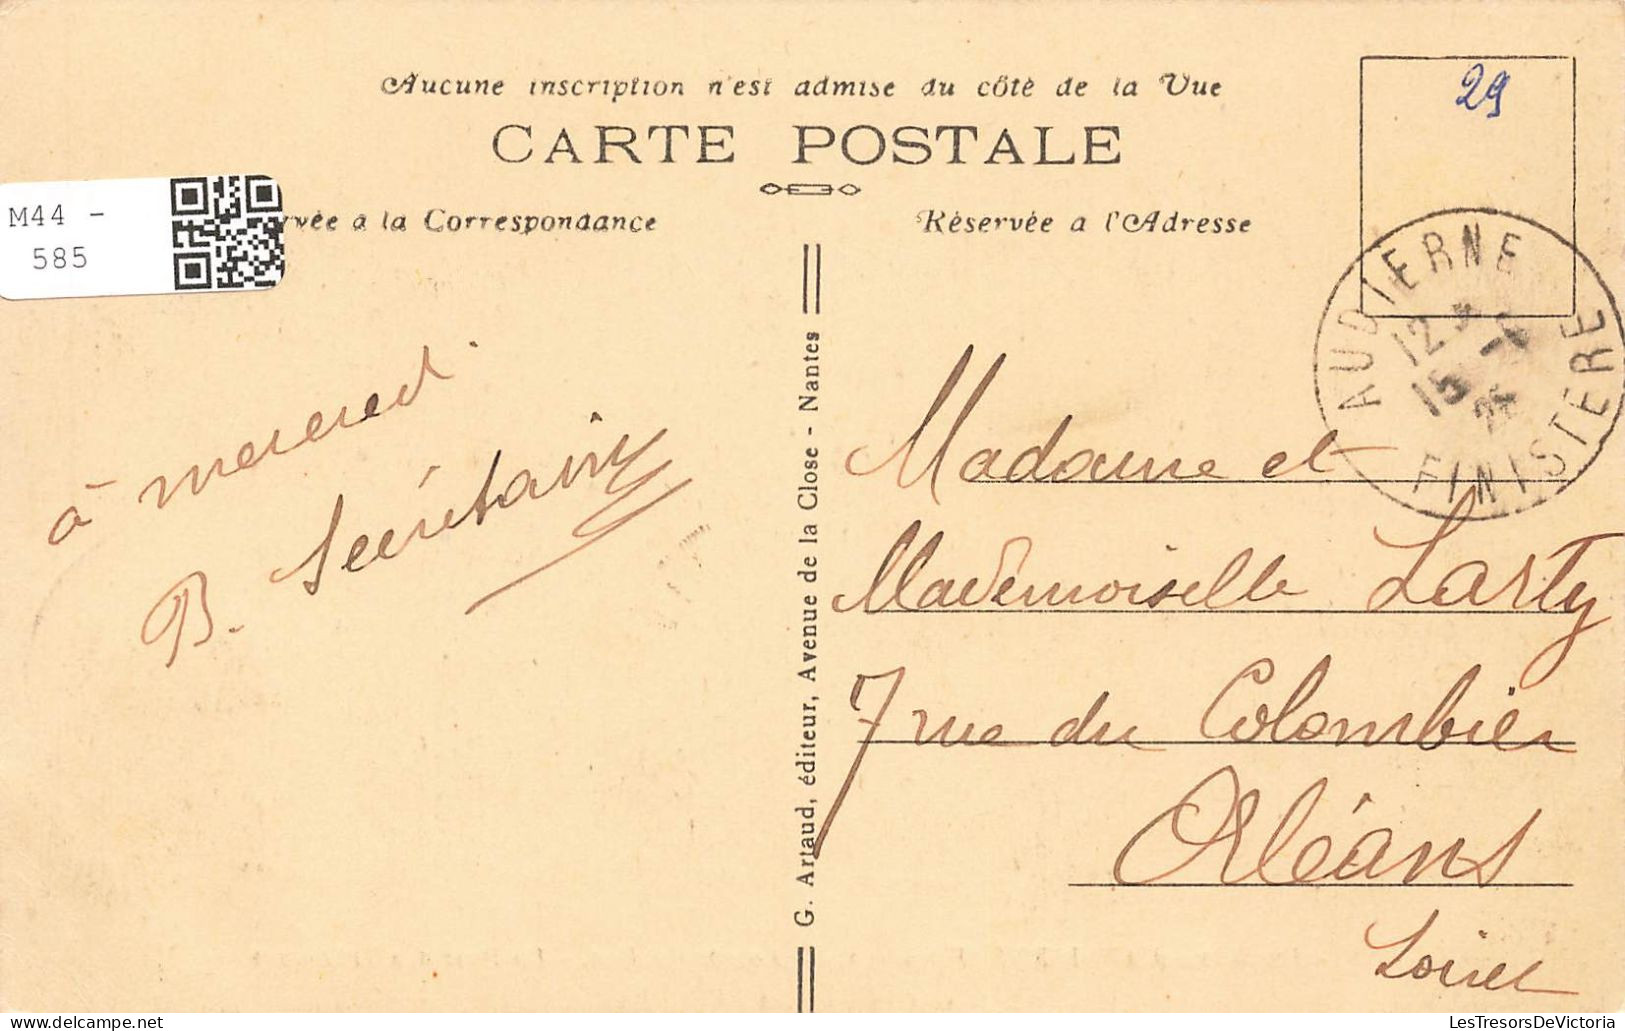 Aucune inscription n'est admise du côté de la Vue
CARTE POSTALE
29
M44 -
585
vée à la Correspondance
Réservée a l'Adresse
AUDIERNE
12
15
FINISTERE
à mercredi
B. Secrétain
G. Artaud, éditeur, Avenue de la Close - Nantes
Madame et
Mademoiselle Larty
7 rue du Colombier
Orléans
Loiret
LesTresorsDeVictoria